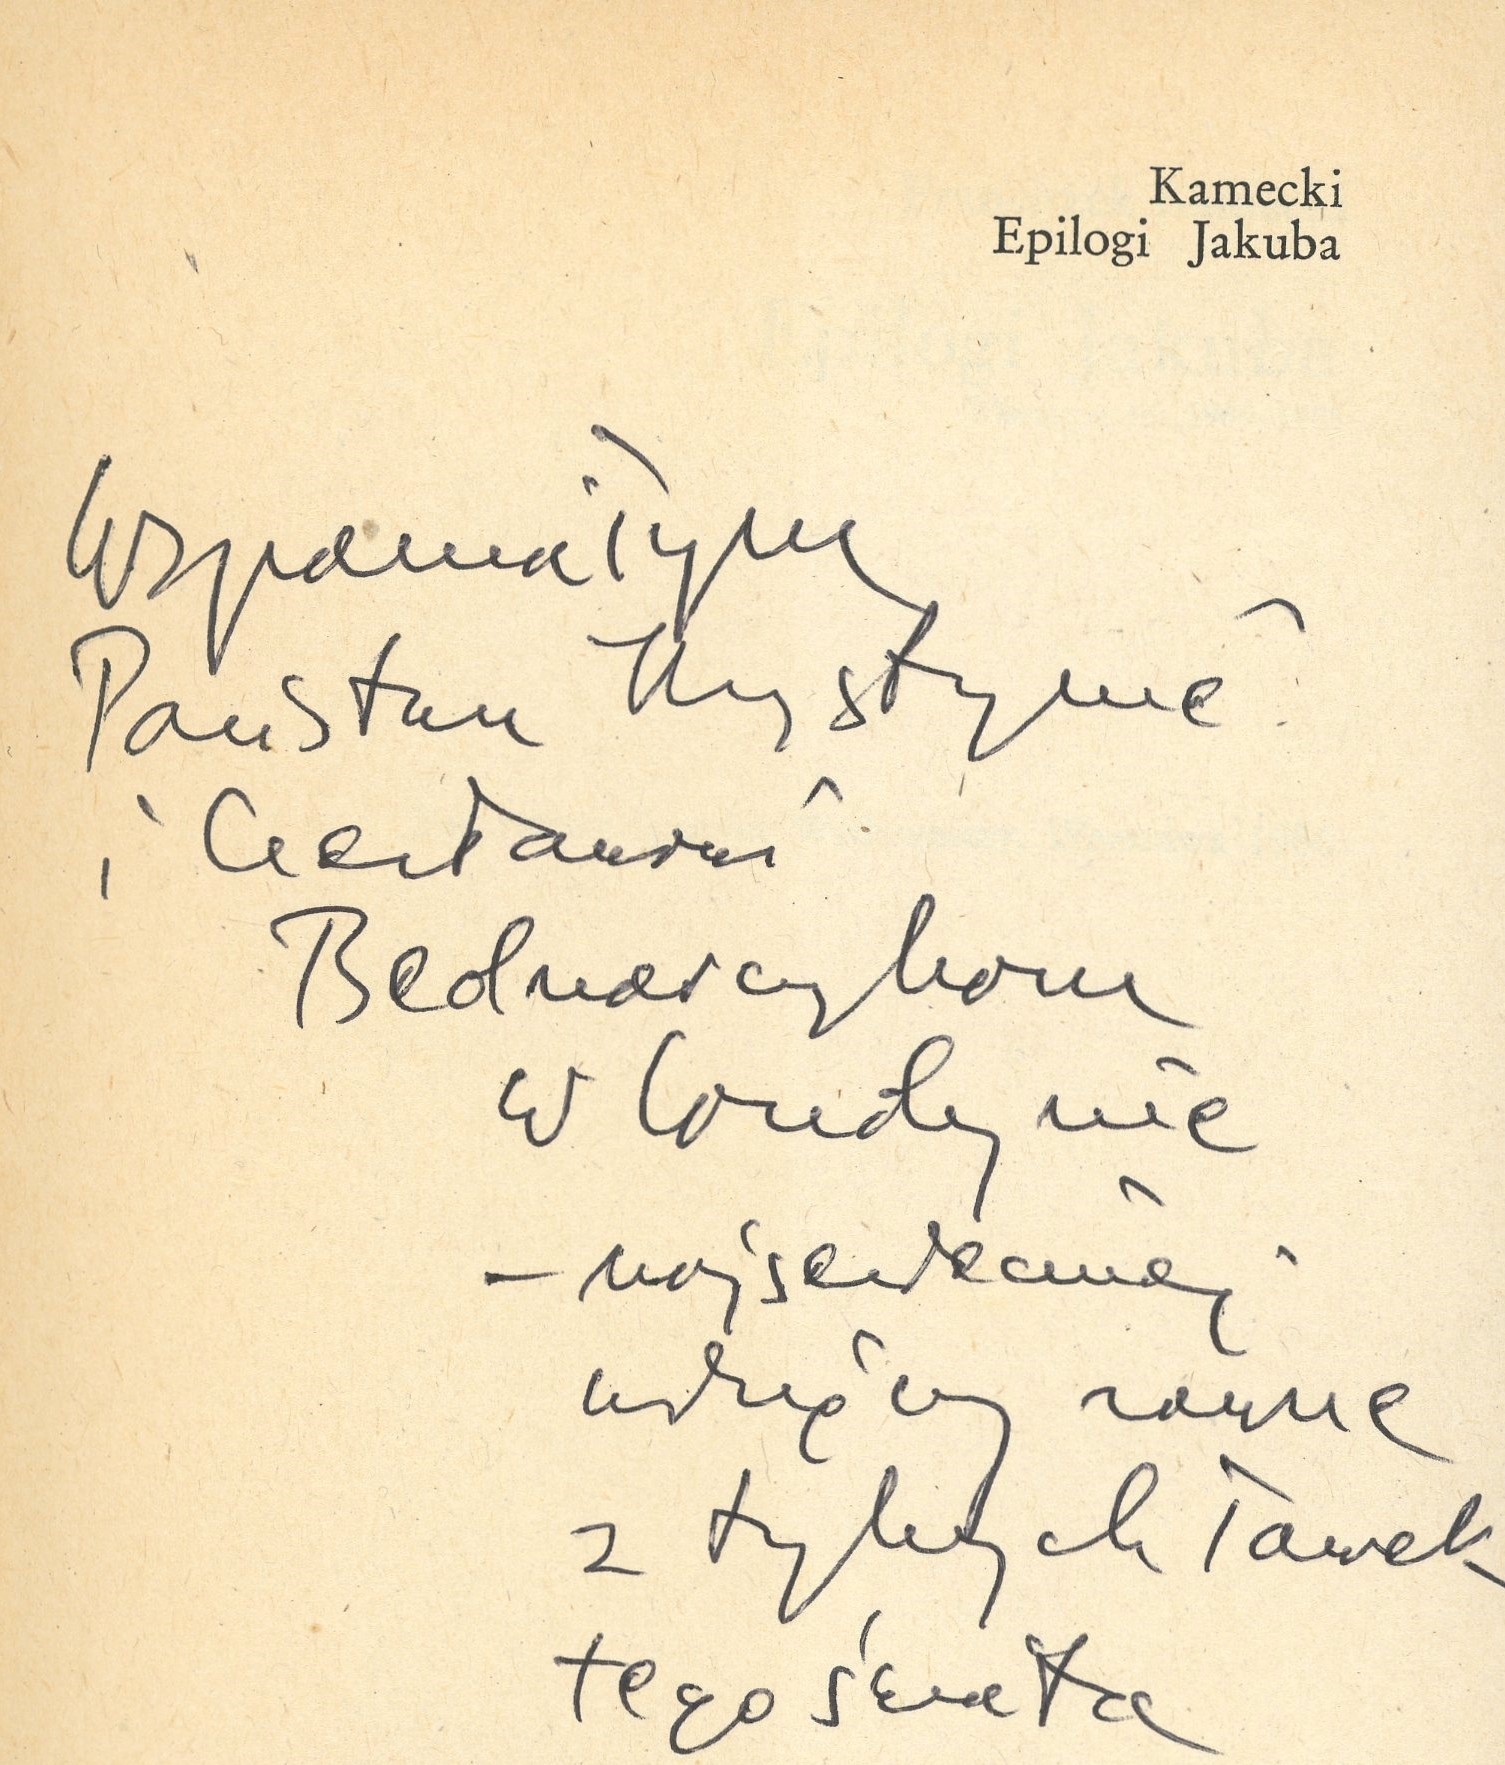 Kamecki
Epilogi Jakuba
Wspaniałym
Państwu Krystynie
i Czesławowi
Bednarczykom
w Londynie
– najserdeczniej
wdzięczny
z tylnych ławek
tego świata